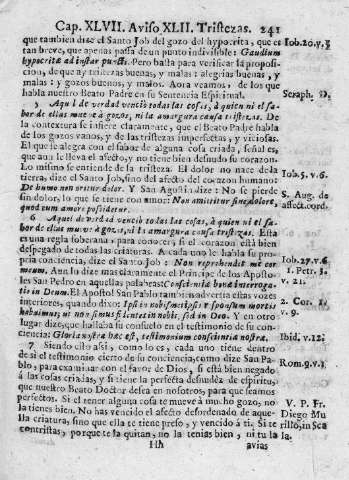 Cap. XLVII. Aviso XLII. Tristezas. 241
que tambien dize el Santo Job del gozo del hypocrita, que es
tan breve, que apenas passa de un punto indivisible: Gaudium
hypocritæ ad instar puncti. Pero basta para verificar la propo-
sicion, de que ay tristezas buenas, y malas: alegrias buenas, y
malas: y gozos buenos, y malos. Aora veamos, de los que
habla nuestro Beato Padre en su Sentencia Espiritual.
5 Aquel de verdad venciò todas las cosas, à quien ni el sa-
bor de ellas mueve à gozos, ni la amargura causa tristezas. De
la contextura se infiere claramente, que el Beato Padre habla
de los gozos vanos, y de las tristezas imperfectas, y viciosas.
El que se alegra con el sabor de alguna cosa criada, señal es,
que aun le lleva el afecto, y no tiene bien desnudo su corazon.
Lo mismo se entiende de la tristeza. El dolor no nace de la
tierra, dize el Santo Job, sino del afecto del corazon humano:
De humo non oritur dolor. Y San Agustin dize: No se pierde
sin dolor, lo que se tiene con amor: Non amittitur sine dolore,
quod cum amore possidetur.
6 Aquel de verdad venciò todas las cosas, à quien ni el sa-
bor de ellas mueve à gozos, ni la amargura causa tristezas. Esta
es una regla soberana para conocer, si el corazon està bien
despegado de todas las criaturas. A cada uno le habla su pro-
pria conciencia, dize el Santo Job: Non reprehendit me cor
meum. Aun lo dize mas claramente el Principe de los Aposto-
les San Pedro en aquellas palabras: Conscientiæ bonæ interroga-
tio in Deum. El Apostol San Pablo tambien advertia estas vozes
interiores, quando dixo: Ipsi in nobis metipsis responsum mortis
habuimus, ut non simus fidentes in nobis, sed in Deo. Y en otro
lugar dize, que hallaba su consuelo en el testimonio de su con-
ciencia: Gloria nostra hæc est, testimonium conscientiæ nostræ.
7 Siendo esto assi, como lo es, cada uno tiene dentro
de si el testimonio cierto de su conciencia, como dize San Pa-
blo, para examinar con el favor de Dios, si està bien negado
à las cosas criadas, y si tiene la perfecta desnudèz de espiritu,
que nuestro Beato Doctor desea en nosotros, para que seamos
perfectos. Si el tener alguna cosa te mueve à mucho gozo, no
la tienes bien. No has vencido el afecto desordenado de aque-
lla criatura, sino que ella te tiene preso, y vencido à ti. Si te
contristas, porque te la quitan, no la tenias bien, ni tu la
Hh avias
Iob. 20. v. 5
Seraph. D.
Iob. 5. v. 6.
S. Aug. de
affect. cord.
Iob. 27. v. 6
1. Petr. 3.
v. 21.
2. Cor. 1.
v. 9.
Ibid. v. 12.
Rom. 9. v. 1.
V. P. Fr.
Diego Mu
rillo, in Sca
la.